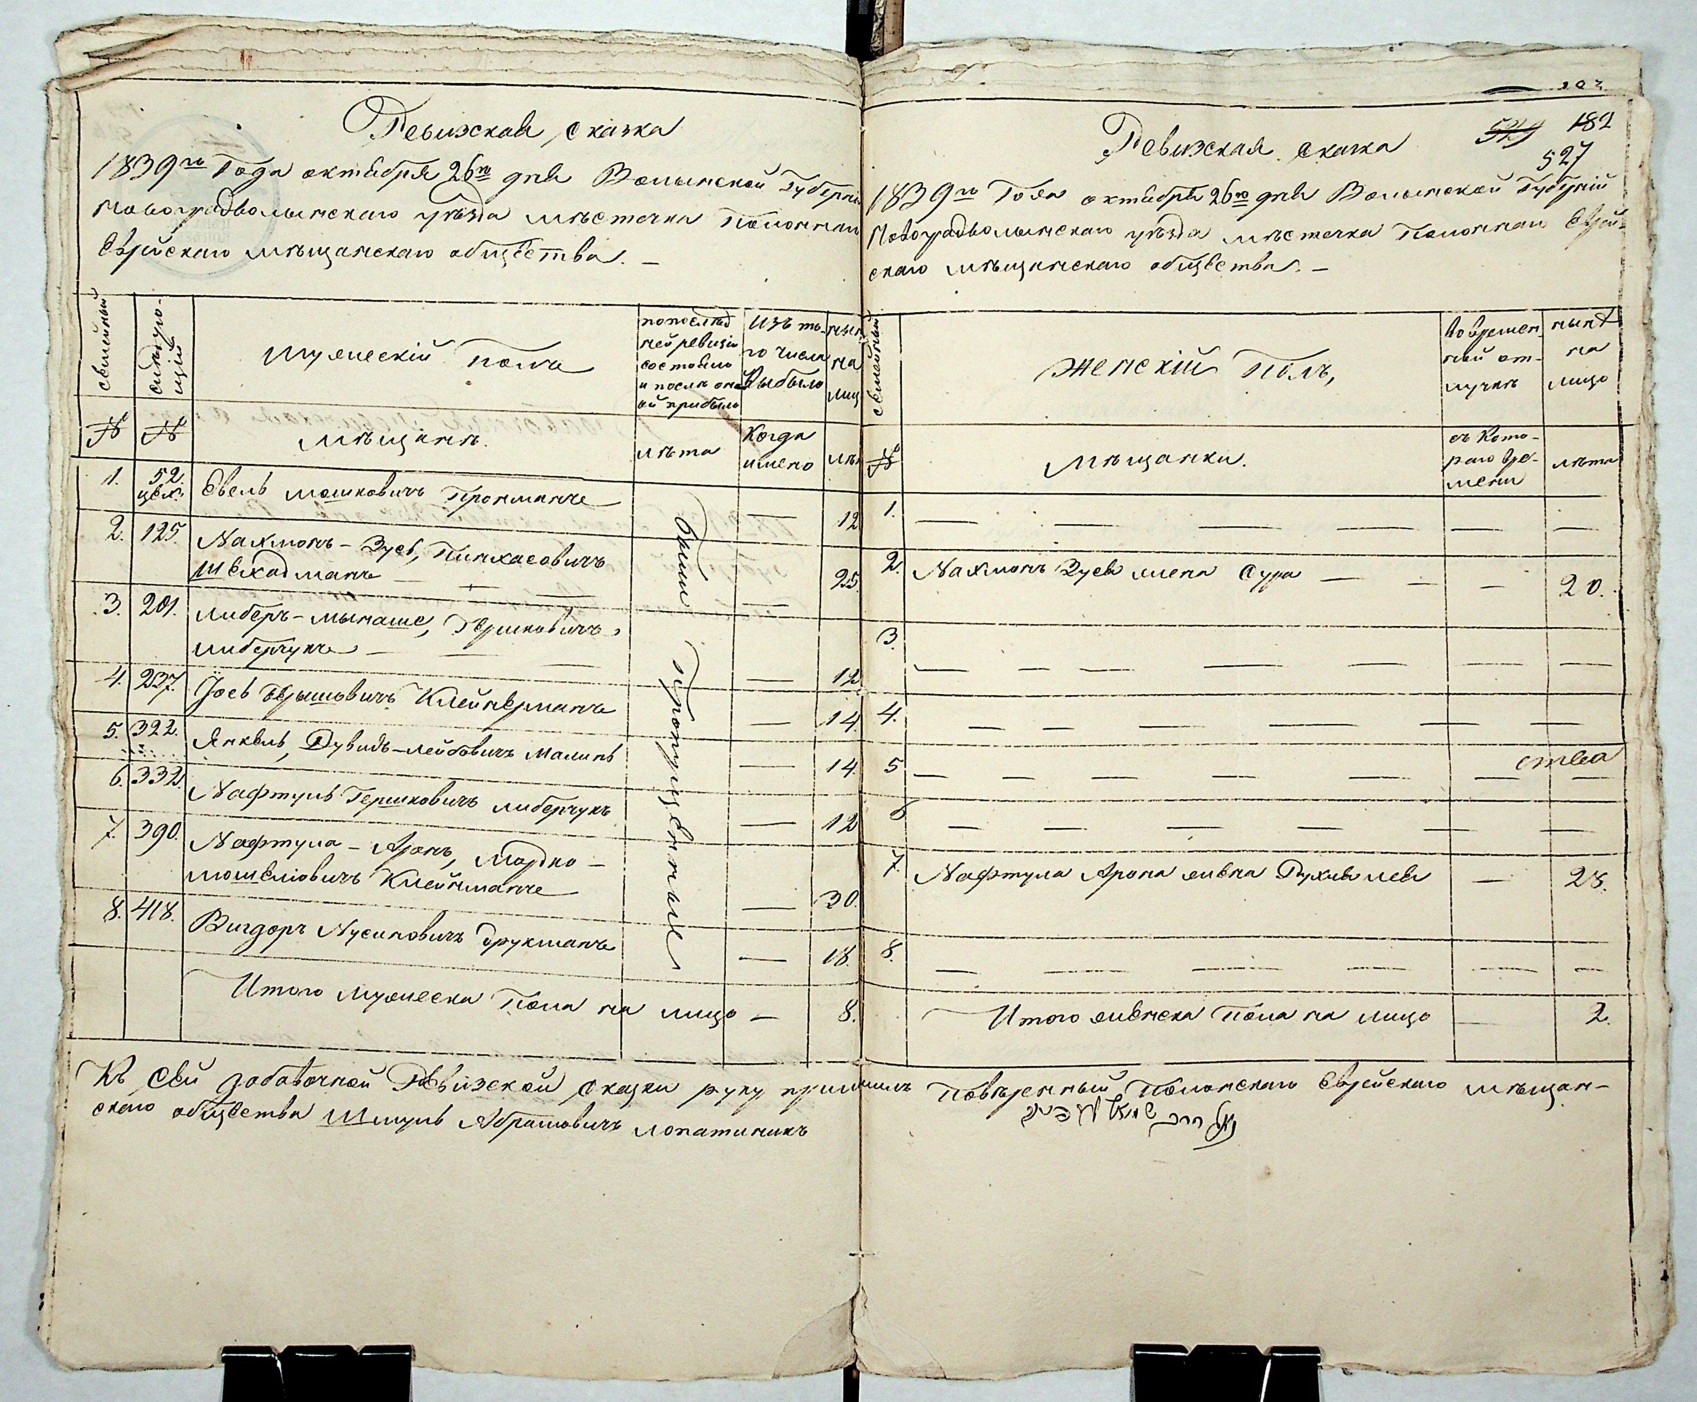 Ревизская сказка
1839го Года октября 26го дня Волынской Губерніи
Новоградволынскаго уѣзда мѣстечка Полоннаго
Еврейскаго мѣщанскаго общества. —
семейный
№
мужескій полъ
мѣщанъ.
по послѣд
ней ревизіи
состояло
и послѣ он
ой прибыло
лѣта
изъ то-
го числа
выбыло
Когда
имено
нын
на
лиц
лѣт
были Пропущенные
1. 52. Евель мошковичъ — 12
2. 125. Нахмонъ-Зусь, Пинхасовичъ
Шехадманъ — 25.
3. 201. либеръ-мынаше, Гершковичъ
либерчукъ — 12
4. 237. Іось Клейнерманъ — 14.
5. 322. Янкель, Дувидъ-лейбовичъ малинъ — 14.
6. 332. Нафтуль Гершковичъ либерчукъ — 12
7. 390. Нафтула-Аронъ, Мордко-
мошеліовичъ Клейнманъ — 30.
8. 418. Вигдоръ Нусиновичъ друкманъ — 18.
Итого мужеска пола на лицо — 8.
182
527
Ревизская сказка
1839го Года октября 26го дня Волынской Губерніи
Новоградволынскаго уѣзда мѣстечка Полоннаго Еврей-
скаго мѣщанскаго общества. —
семейный
№
женскій полъ,
мѣщанки.
во времен
ной от-
лучкѣ
съ Кото-
раго вре-
мени
нынѣ
на
лицо
лѣта
1. — — — —
2. Нахмонъ Зуся жена Сура — — 20.
3. — — — —
4. — — — —
5 — — — —
6 — — — —
7. Нафтула Арона жена Рухля — 28.
8. — — — —
Итого женска пола на лицо — 2.
Къ сей добавочной Ревизской сказки руку приложилъ Повѣренный Полонскаго Еврейскаго мѣщан-
скаго общества Шмуль Абрамовичъ лопатникъ